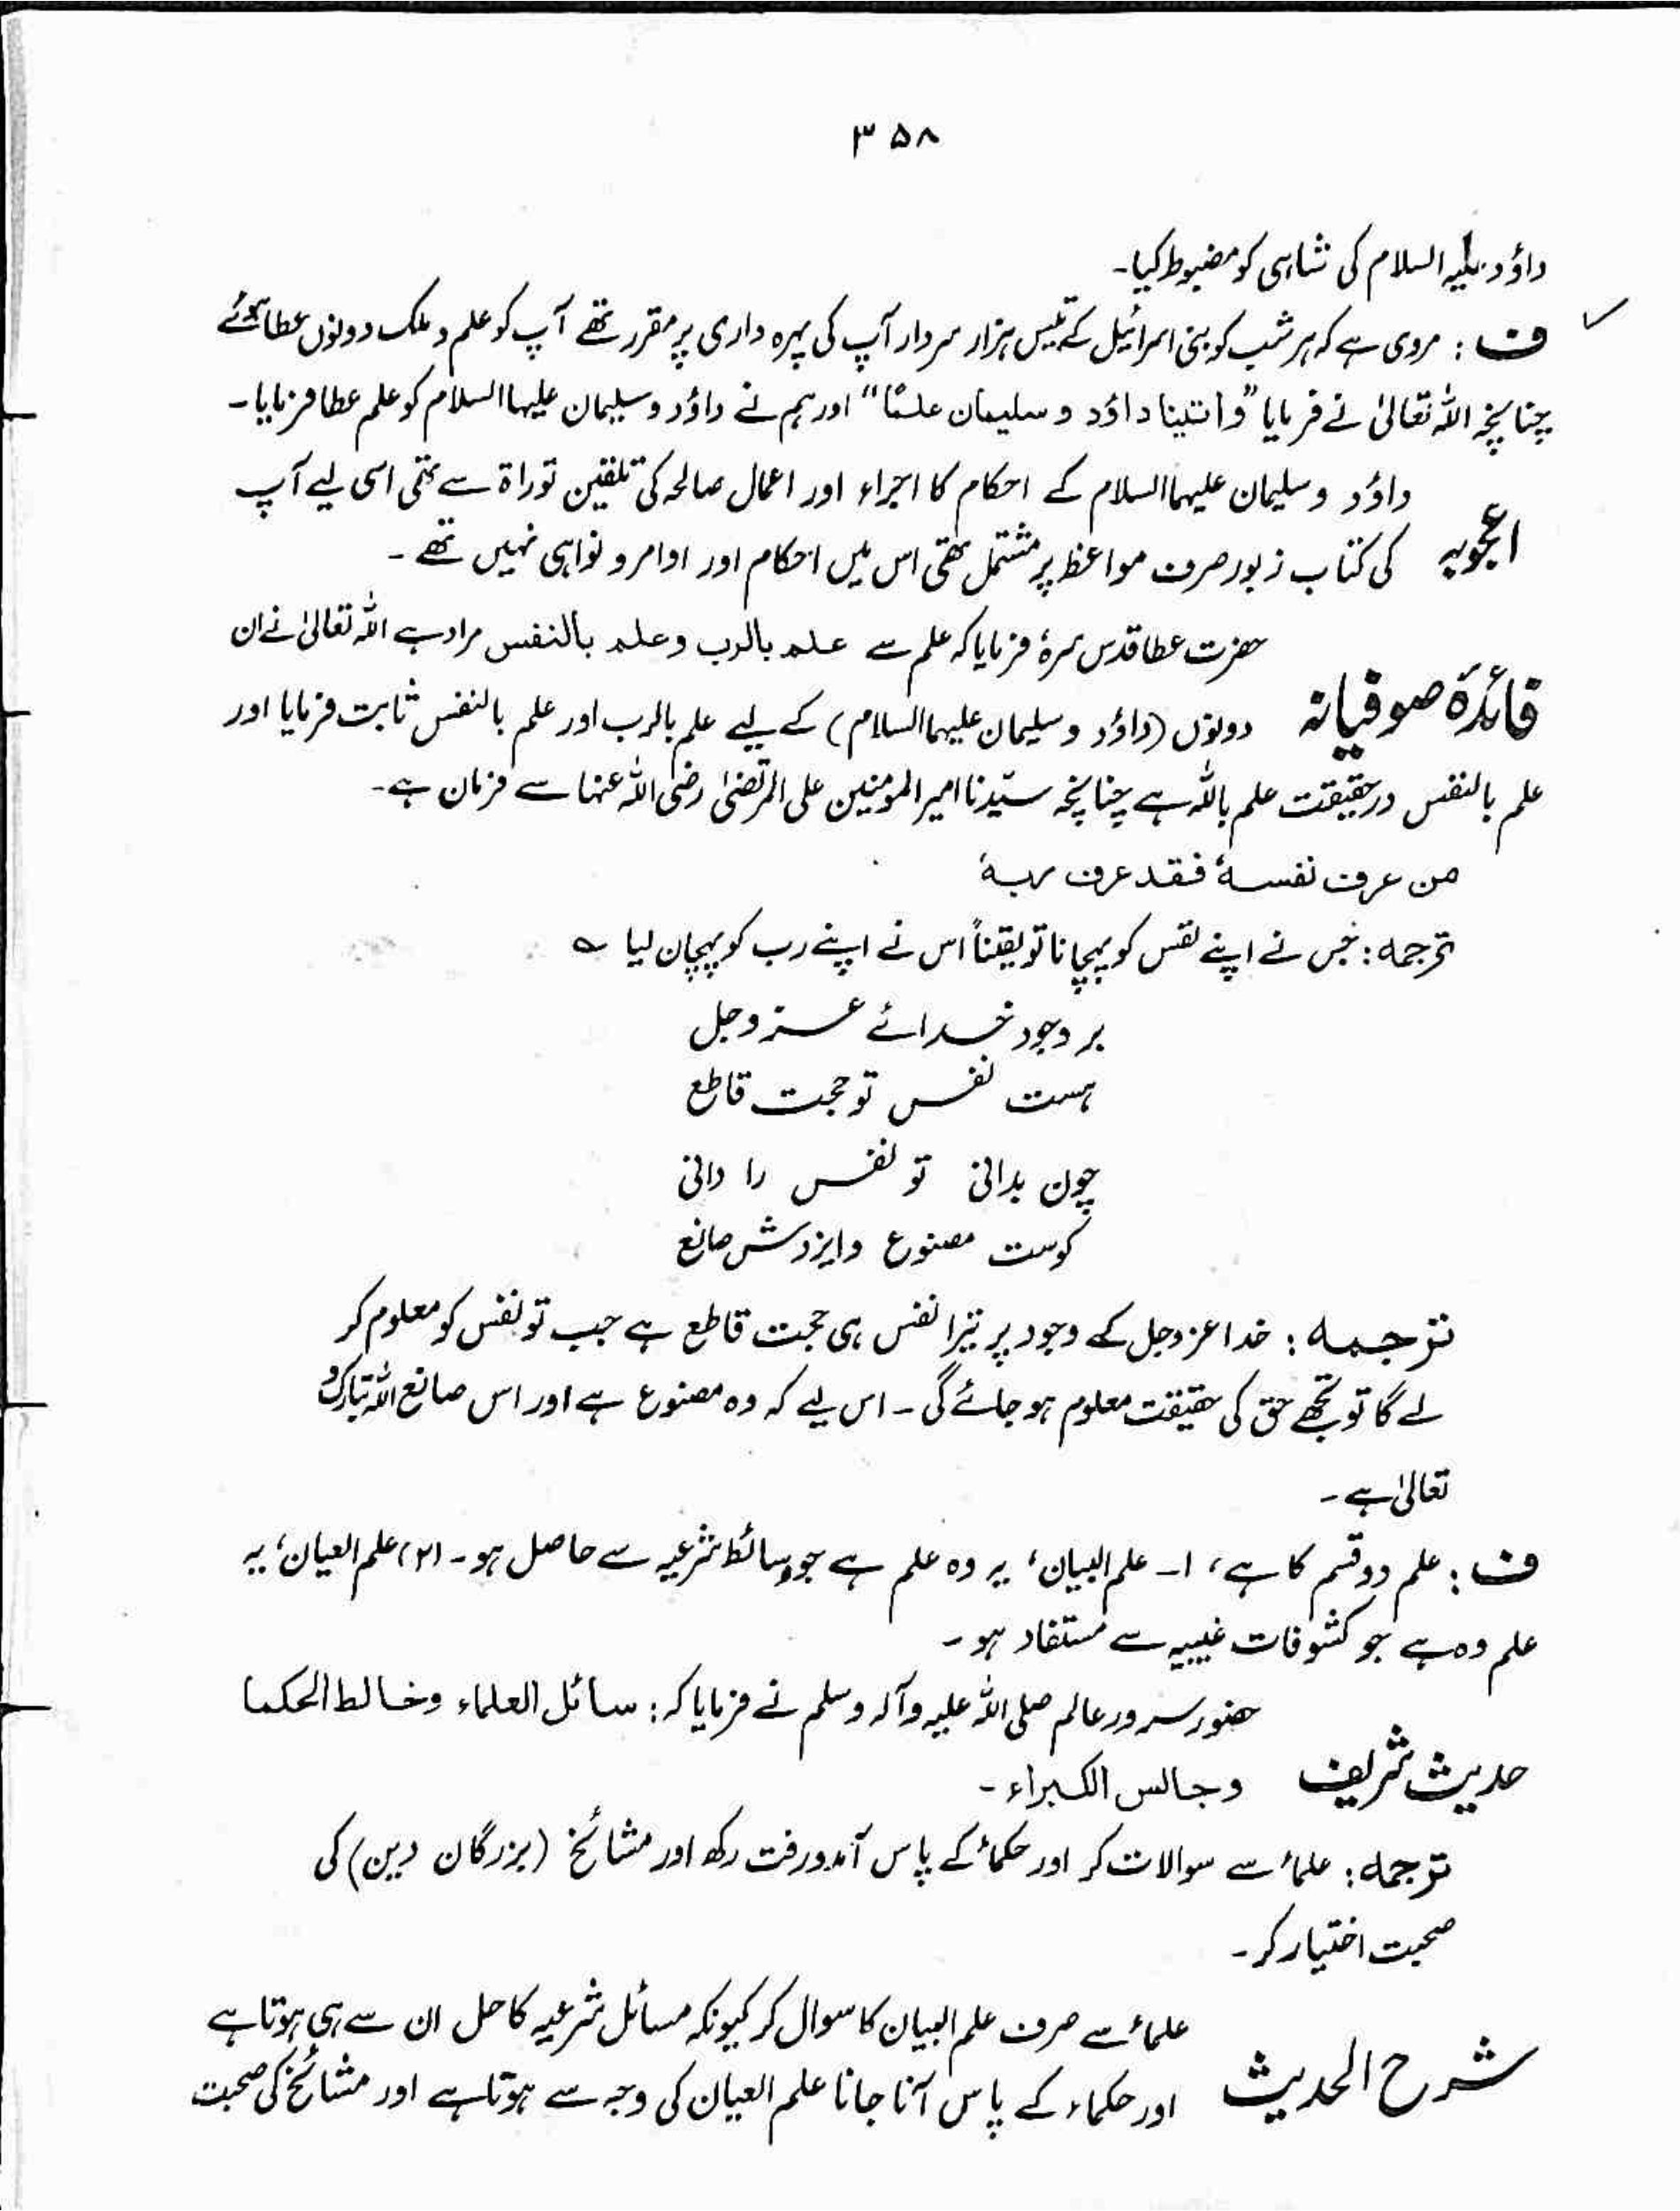 ۳۵۸
داؤد علیہ السلام کی شاہی کو مضبوط کیا۔
ف : مروی ہے کہ ہر شب کو بنی اسرائیل کے تیس ہزار سردار آپ کی پہرہ داری پر مقرر تھے آپ کو علم و ملک دونوں عطا ہوئے
چنانچہ اللہ تعالیٰ نے فرمایا "و اٰتینا داؤد و سلیمان علمًا" اور ہم نے داؤد و سلیمان علیہما السلام کو علم عطا فرمایا۔
داؤد و سلیمان علیہما السلام کے احکام کا اجراء اور اعمال صالحہ کی تلقین توراۃ سے تھی اسی لیے آپ
اعجوبہ کی کتاب زبور صرف مواعظ پر مشتمل تھی اس میں احکام اور اوامر و نواہی نہیں تھے ۔
حضرت عطا قدس سرہٗ فرمایا کہ علم سے علم بالرب وعلم بالنفس مراد ہے اللہ تعالیٰ نے ان
فائدۂ صوفیانہ دونوں (داؤد و سلیمان علیہما السلام) کے لیے علم بالرب اور علم بالنفس ثابت فرمایا اور
علم بالنفس درحقیقت علم باللہ ہے چنانچہ سیّدنا امیر المومنین علی المرتضیٰ رضی اللہ عنہا سے فرمان ہے۔
من عرف نفسہٗ فقد عرف ربہٗ
ترجمہ : جس نے اپنے نفس کو پہچانا تو یقیناً اس نے اپنے رب کو پہچان لیا ؎
بر وجود خدائے عزوجل
ہست نفس تو حجت قاطع
چون بدانی تو نفس را دانی
کوست مصنوع وایزدش صانع
ترجمہ : خدا عزوجل کے وجود پر تیرا نفس ہی حجت قاطع ہے جب تو نفس کو معلوم کر
لے گا تو تجھے حق کی حقیقت معلوم ہو جائے گی ۔ اس لیے کہ وہ مصنوع ہے اور اس صانع اللہ تبارک و
تعالیٰ ہے ۔
ف : علم دو قسم کا ہے ، ۱۔ علم البیان ، یہ وہ علم ہے جو وسائط شرعیہ سے حاصل ہو ۔ (۲) علم العیان ، یہ
علم وہ ہے جو کشوفات غیبیہ سے مستفاد ہو ۔
حضور سرور عالم صلی اللہ علیہ وآلہ وسلم نے فرمایا کہ : سائل العلماء وخالط الحکما
حدیث شریف وجالس الکبراء ۔
ترجمہ : علماء سے سوالات کر اور حکماء کے پاس آمدورفت رکھ اور مشائخ (بزرگان دین) کی
صحبت اختیار کر ۔
علماء سے صرف علم البیان کا سوال کر کیونکہ مسائل شرعیہ کا حل ان سے ہی ہوتا ہے
شرح الحدیث اور حکماء کے پاس آنا جانا علم العیان کی وجہ سے ہوتا ہے اور مشائخ کی صحبت